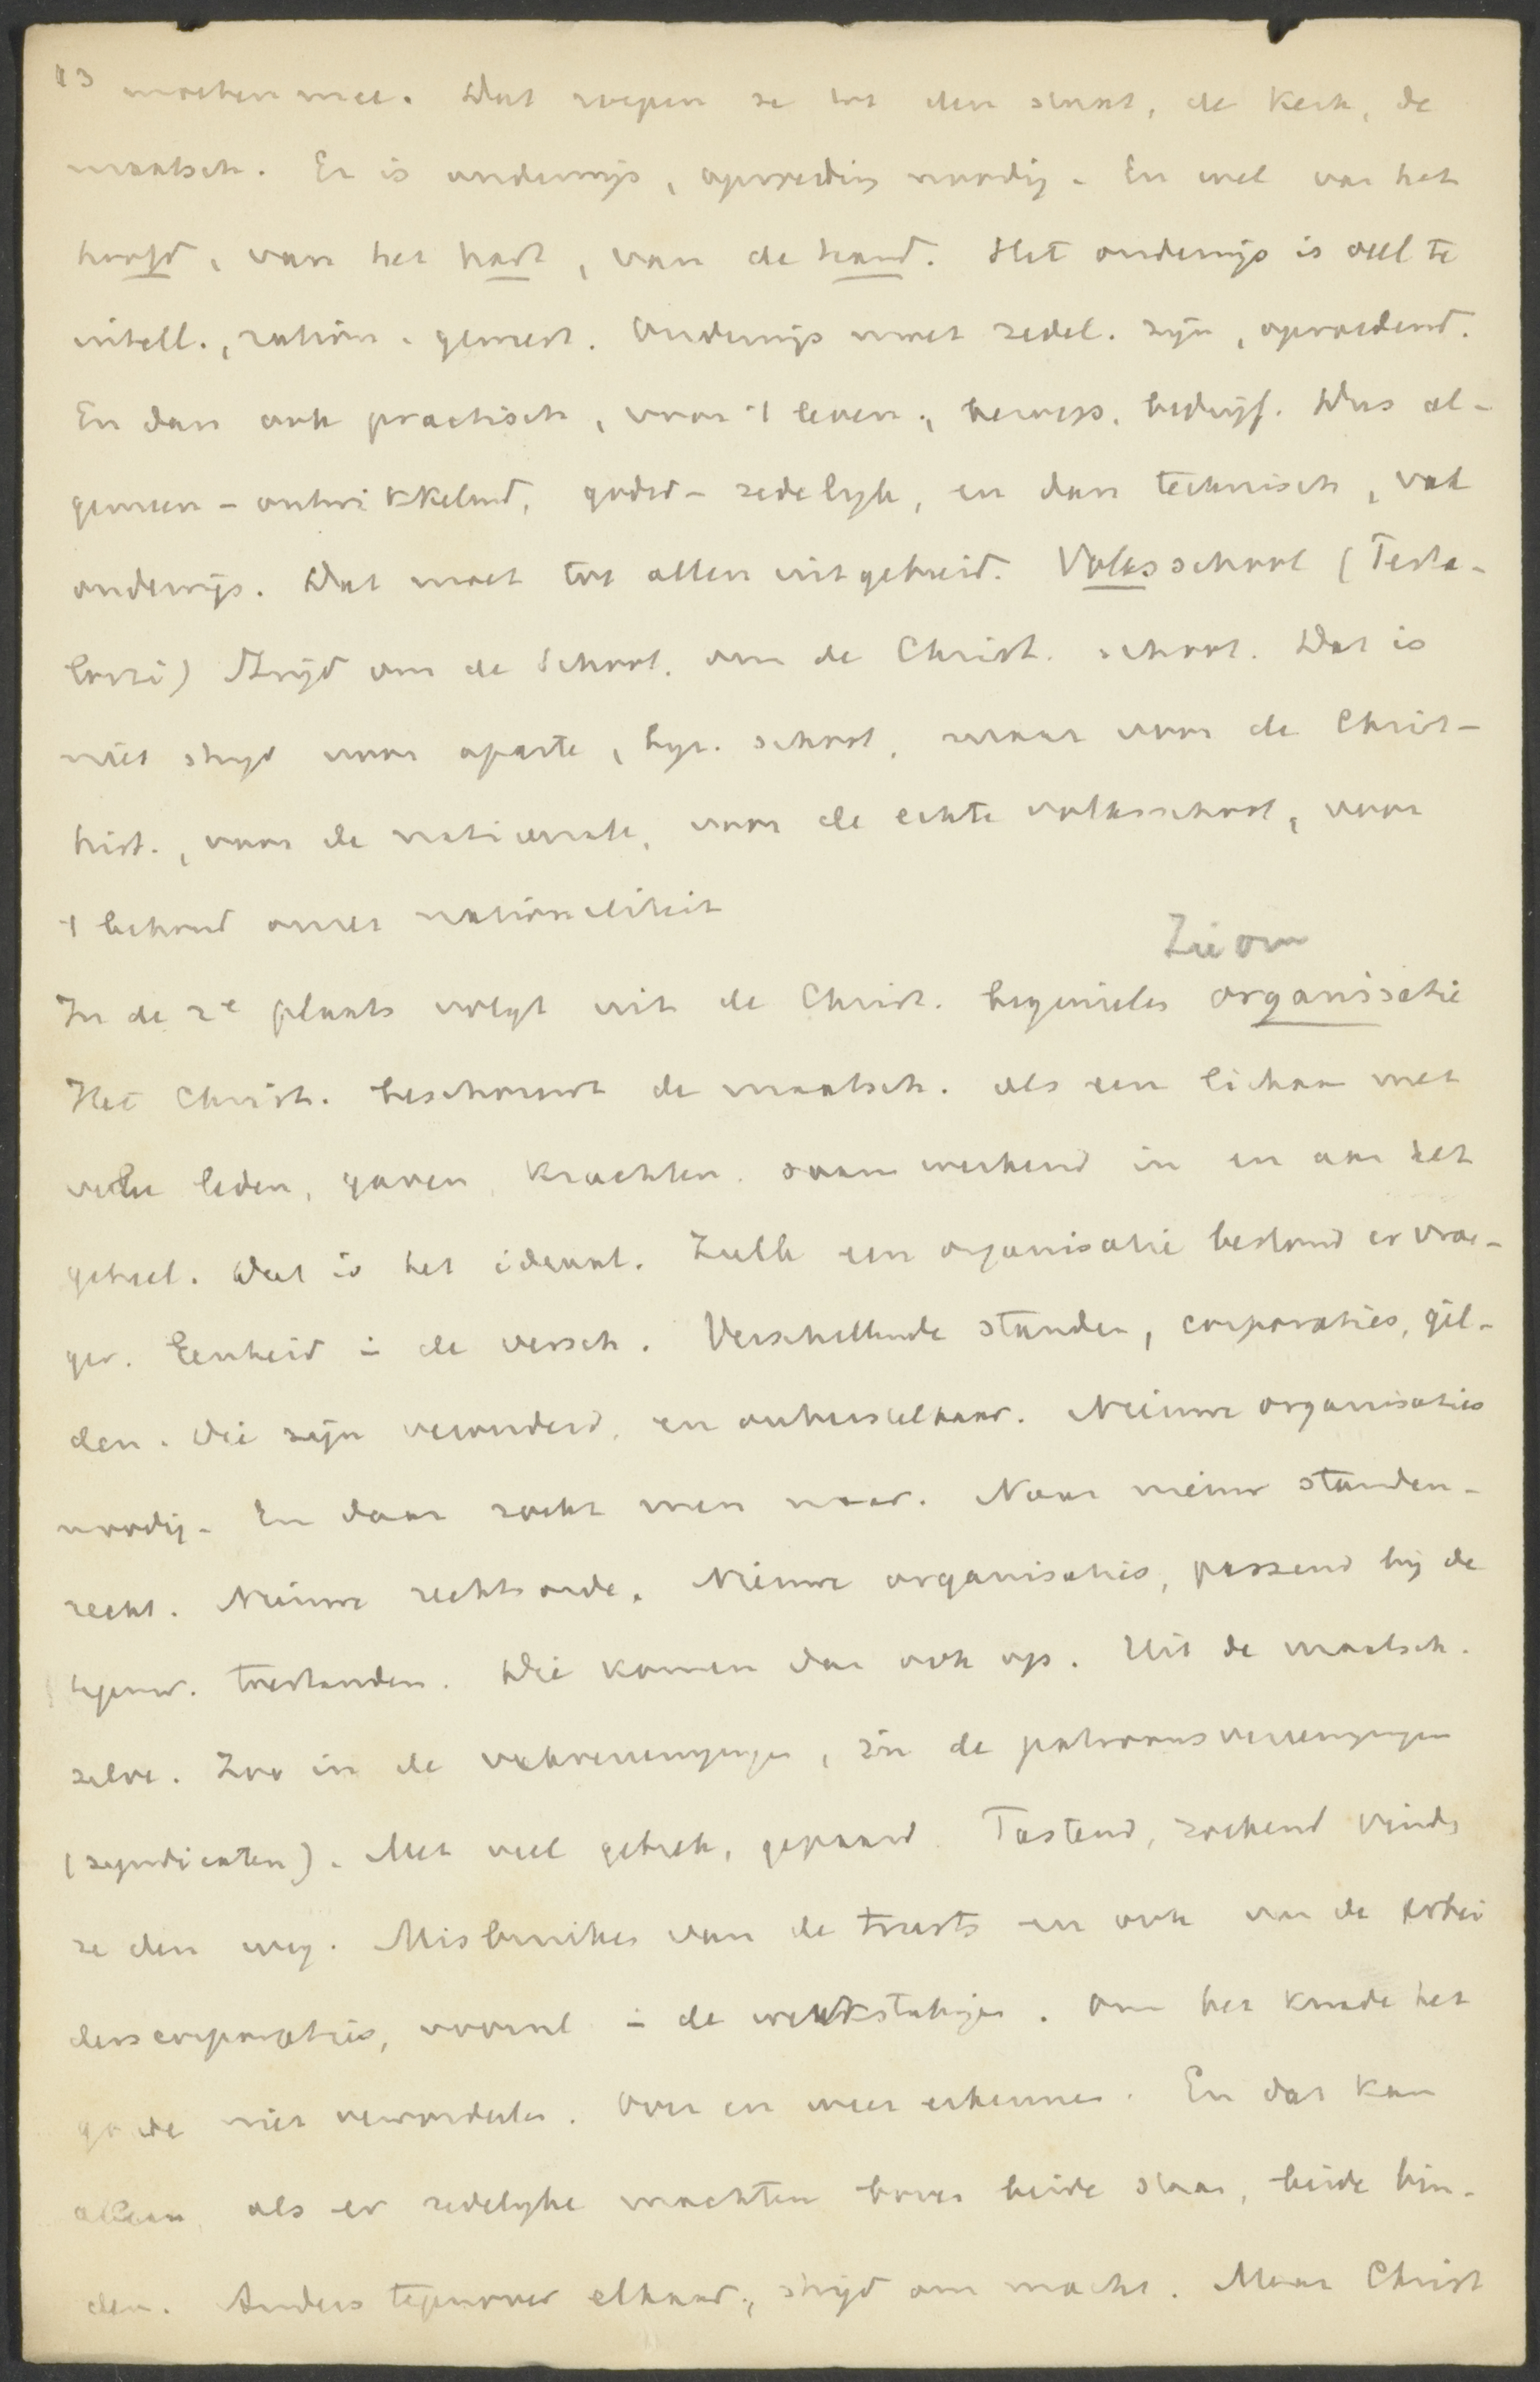 13 moeten mee. Dat roepen ze tot den staat, de kerk, de
maatsch. Er is onderwijs, opvoeding noodig. En wel van het
hoofd, van het hart, van de hand. Het onderwijs is veel te
intell., ration. geweest. Onderwijs moet zedel. zijn, opvoedend.
En dan ook practisch, voor 't leven, beroeps, bedrijf. Dus al-
gemeen-ontwikkelend, godsd-zedelijk, en dan technisch, vak
onderwijs. Dat moet tot allen uitgebreid. Volksschool (Pesta-
lozzi) Strijd om de School, om de Christ. school. Dat is
niet strijd voor aparte, bijz. school, maar voor de Christ-
hist., voor de nationale, voor de echte volksschool, voor
't behoud onzer nationaliteit
Zie om
In de 2e plaats volgt uit de Christ. beginselen organisatie
Het Christ. beschouwt de maatsch. als een lichaam met
vele leden, gaven, krachten, saam werkend in en aan het
geheel. Dat is het ideaal. Zulk een organisatie bestond er vroe-
ger. Eenheid in de versch. Verschillende standen, corporaties, gil-
den. Die zijn verouderd, en onherstelbaar. Nieuwe organisaties
noodig. En daar zoekt men naar. Naar nieuw standen-
recht. Nieuwe rechtsorde. Nieuwe organisaties, passend bij de
tegenw. toestanden. Die komen dan ook op. Uit de maatsch.
zelve. Zoo in de vakvereenigingen, in de patroonsvereenigingen
(syndicaten). Met veel gebrek, gepaard. Tastend, zoekend vinds
ze den weg. Misbruiken van de trusts en ook van de arbei
derscorporaties, vooral in de werkstakingen. Om het kwade het
goede niet veroordeelen. Over en weer erkennen. En dat kan
alleen, als er zedelijke machten boven beide staan, beide bin-
den. Anders tegenover elkaar, strijd om macht. Maar Christ